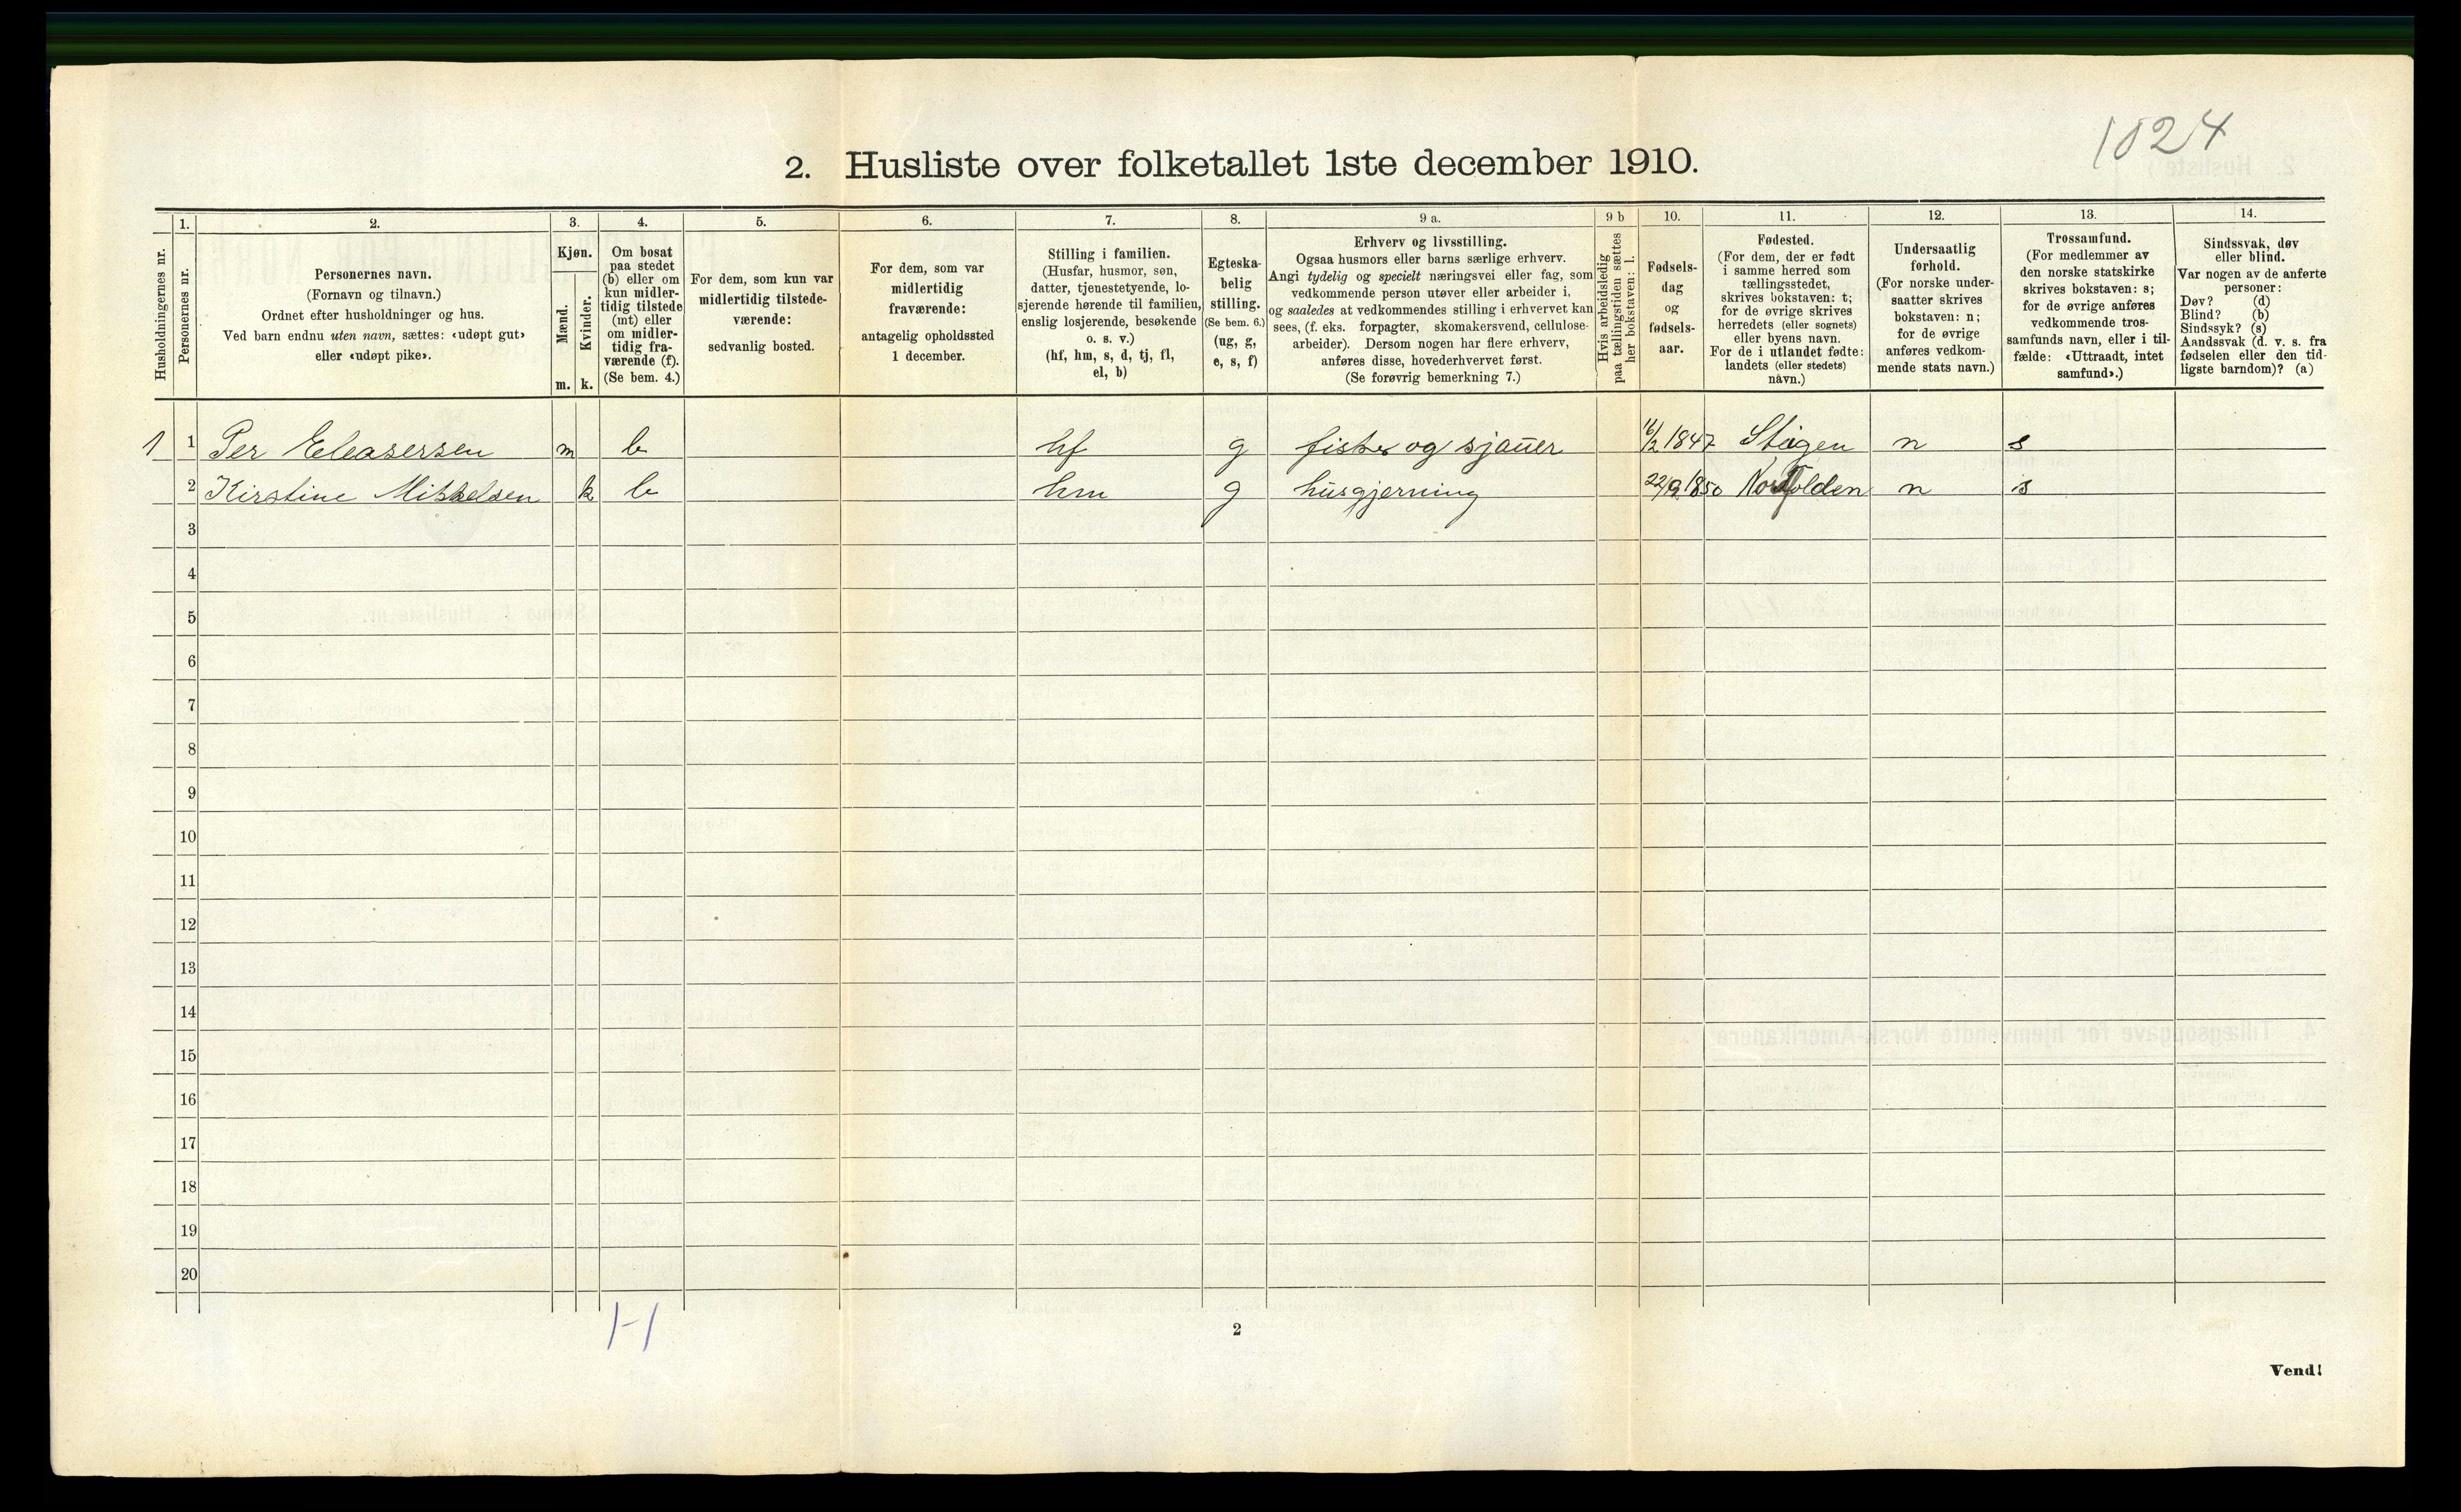 1024
2. Husliste over folketallet 1ste december 1910.
Husholdningernes nr.
1.
Personernes nr.
2.
Personernes navn.
(Fornavn og tilnavn.)
Ordnet efter husholdninger og hus.
Ved barn endnu uten navn, sættes: «udøpt gut»
eller «udøpt pike».
3.
Kjøn.
Mænd.
Kvinder.
m. k.
4.
Om bosat
paa stedet
(b) eller om
kun midler-
tidig tilstede
(mt) eller
om midler-
tidig fra-
værende (f).
(Se bem. 4.)
5.
For dem, som kun var
midlertidig tilstede-
værende:
sedvanlig bosted.
6.
For dem, som var
midlertidig
fraværende:
antagelig opholdssted
1 december.
7.
Stilling i familien.
(Husfar, husmor, søn,
datter, tjenestetyende, lo-
sjerende hørende til familien,
enslig losjerende, besøkende
o. s. v.)
(hf, hm, s, d, tj, fl,
el, b)
8.
Egteska-
belig
stilling.
(Se bem. 6.)
(ug, g,
e, s, f)
9 a.
Erhverv og livsstilling.
Ogsaa husmors eller barns særlige erhverv.
Angi tydelig og specielt næringsvei eller fag, som
vedkommende person utøver eller arbeider i,
og saaledes at vedkommendes stilling i erhvervet kan
sees, (f. eks. forpagter, skomakersvend, cellulose-
arbeider). Dersom nogen har flere erhverv,
anføres disse, hovederhvervet først.
(Se forøvrig bemerkning 7.)
9 b
Hvis arbeidsledig
paa tællingstiden sættes
her bokstaven: l.
10.
Fødsels-
dag
og
fødsels-
aar.
11.
Fødested.
(For dem, der er født
i samme herred som
tællingsstedet,
skrives bokstaven: t;
for de øvrige skrives
herredets (eller sognets)
eller byens navn.
For de i utlandet fødte:
landets (eller stedets)
navn.)
12.
Undersaatlig
forhold.
(For norske under-
saatter skrives
bokstaven: n;
for de øvrige
anføres vedkom-
mende stats navn.)
13.
Trossamfund.
(For medlemmer av
den norske statskirke
skrives bokstaven: s;
for de øvrige anføres
vedkommende tros-
samfunds navn, eller i til-
fælde: «Uttraadt, intet
samfund».)
14.
Sindssvak, døv
eller blind.
Var nogen av de anførte
personer:
Døv? (d)
Blind? (b)
Sindssyk? (s)
Aandssvak (d. v. s. fra
fødselen eller den tid-
ligste barndom)? (a)
1 1 Per Eleasersen m b hf g fisker og sjauer 16/2 1847 Steigen n s
2 Kirstine Mikkelsen k b hm g husgjerning 22/9 1850 Nordfolden n s
3
4
5
6
7
8
9
10
11
12
13
14
15
16
17
18
19
20
1-1
2
Vend!